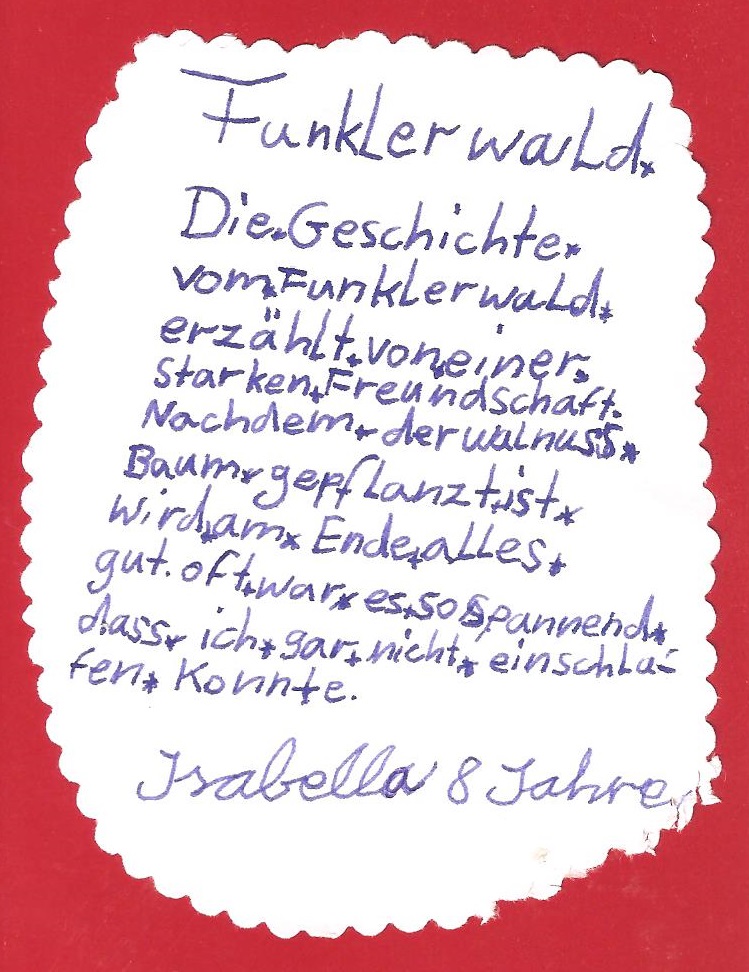 Funklerwald*
Die*Geschichte*
vom*Funklerwald*
erzählt*von*einer*
starken*Freundschaft.
Nachdem*der walnuss*
Baum*gepflanzt*ist*
wird*am*Ende*alles*
gut.oft*war*es*so spannend*
dass*ich*gar*nicht*einschla-
fen*Konnte.
Isabella 8 Jahre